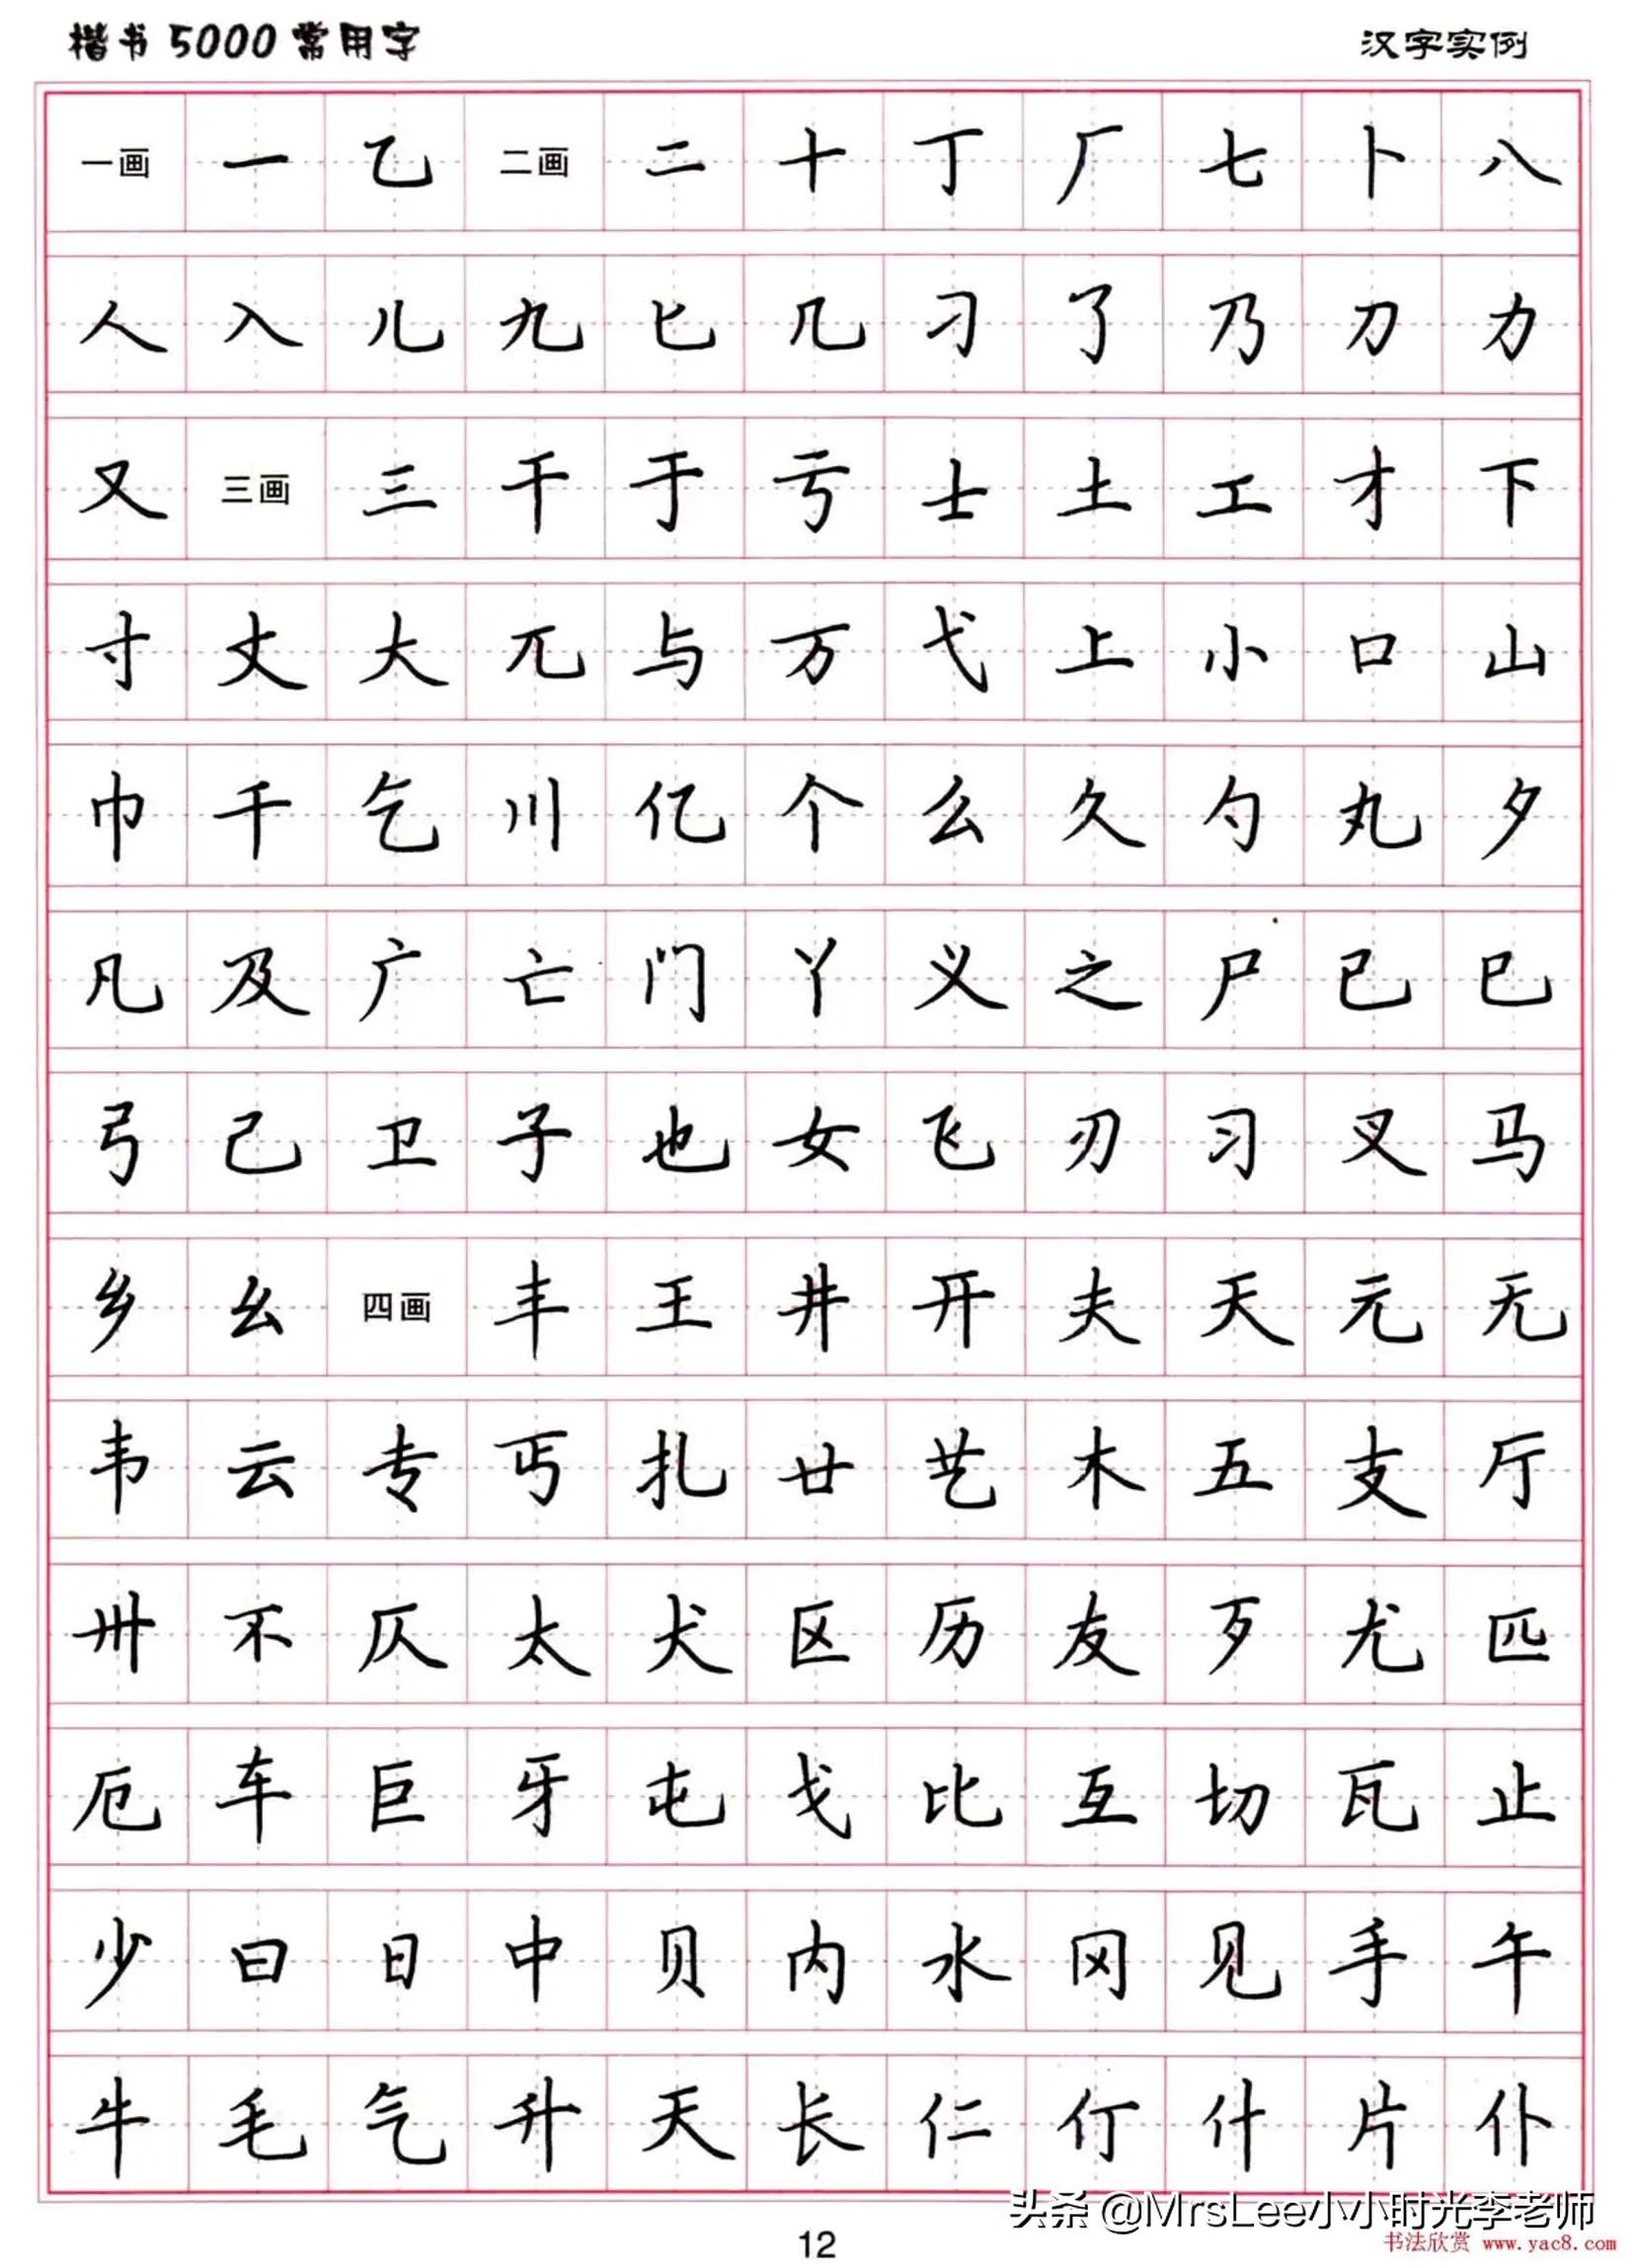 楷书 5000 常用字
汉字实例
一画 一 乙 二画 二 十 丁 厂 七 卜 八
人 入 儿 九 匕 几 刁 了 乃 刀 力
又 三画 三 干 于 亏 士 土 工 才 下
寸 丈 大 兀 与 万 弋 上 小 口 山
巾 千 乞 川 亿 个 么 久 勺 丸 夕
凡 及 广 亡 门 丫 义 之 尸 已 巳
弓 己 卫 子 也 女 飞 刃 习 叉 马
乡 幺 四画 丰 王 井 开 夫 天 元 无
韦 云 专 丐 扎 廿 艺 木 五 支 厅
卅 不 仄 太 犬 区 历 友 歹 尤 匹
厄 车 巨 牙 屯 戈 比 互 切 瓦 止
少 曰 日 中 贝 内 水 冈 见 手 午
牛 毛 气 升 夭 长 仁 仃 什 片 仆
头条 @MrsLee小小时光李老师
书法欣赏 www.yac8.com
12